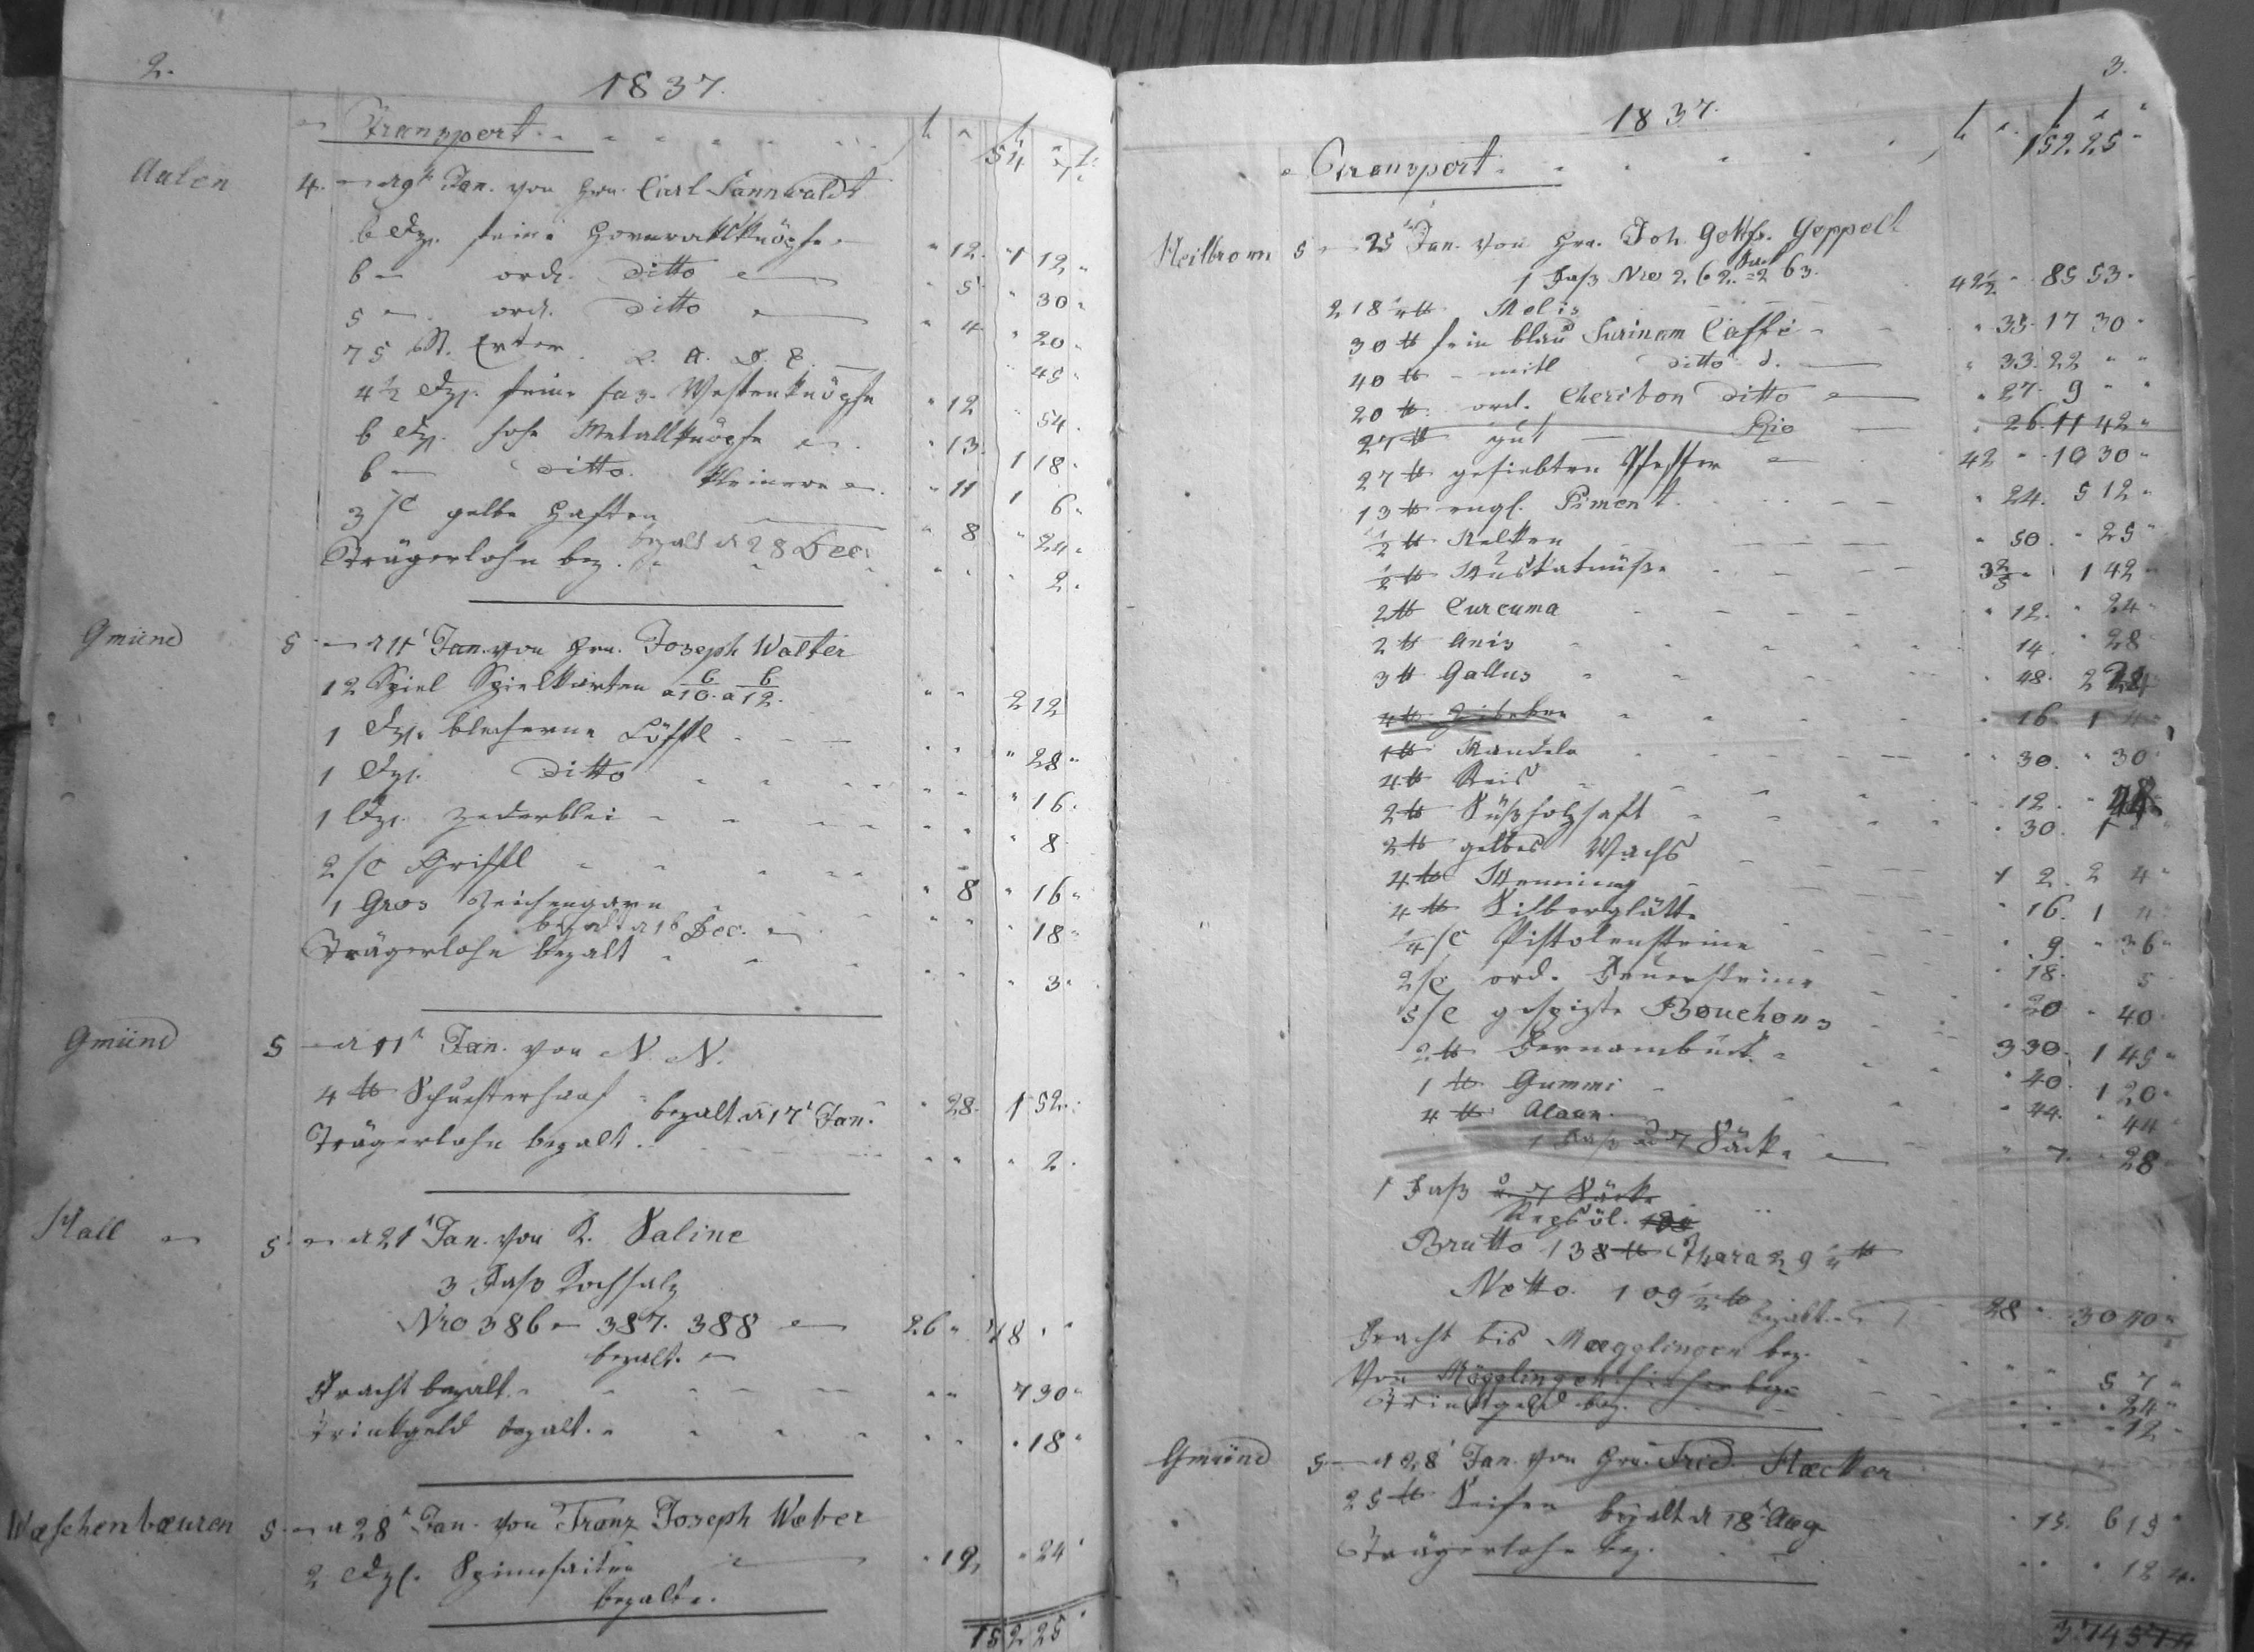 2.
1837.
Transport
54 7
Aalen 4. 9t Jan. von Hrn. Carl Sannwaldt
6 Dzj. feine Hornrockknöpfe 12. 1 12
6 ord. ditto 5 30
5 ord. ditto 4 20
75 St. 45
4½ Dzj. feine faz. Westenknöpfe 12 54
6 Dzj. hohe Metallknöpfe 13. 1 18
6 ditto. kleinere 11 1 6
3/c gelbe Haften 8 24
bezalt d 28 Dec.
Trägerlohn bez. 2.
Gmünd 5 d 11t Jan. von Hrn. Joseph Walter
12 Spiel Spielkarten 6 a 10. 6 a 12. 2 12
1 Dzj. blecherne Löffel 28
1 Dzj. ditto 16.
1 Dzj. Zederblei 8
2/c Griffel 8 16
1 Gros Zeichengarn 18
bezalt d 16 Dec.
Trägerlohn bezalt 3.
Gmünd 5 d 11t Jan. von N. N.
4 ℔ Schusterhanf 28. 1 52.
bezalt d 17t Jan.
Trägerlohn bezalt. 2.
Hall 5. d 21t Jan. von K. Saline
3 Fass Kochsalz
Nro 386 387. 388 26 78
bezalt.
Fracht bezalt. 7 30
Trinkgeld bezalt. 18
Wæschenbæuren 5. d 28t Jan. von Franz Joseph Weber
2 Dzj. Spinnsaiten 12 24
bezalt.
152 25
3.
1837.
Transport 152 25
Heilbronn 5 25t Jan. von Hrn. Joh. Gottfr. Goppelt
1 Faß Nro 262. 263.
218 ℔ Melis 42½ 85 53.
30 ℔ fein blau Surinam Caffe 35. 17 30
40 ℔ mitl ditto d. 33. 22
20 ℔ ord. Cheribon ditto 27. 9
27 ℔ gut Rio 26. 11 42
27 ℔ gesiebten Pfeffer 42 10 30
13 ℔ engl. Piment 24. 5 12
½ ℔ Nelken 50. 25
½ ℔ Muskatnüße 1 42
2 ℔ Curcuma 12. 24
2 ℔ Anis 14. 28
3 ℔ Gallus 48. 2 24
4 ℔ Zibeben 16. 1 4
1 ℔ Mandeln 30. 30
4 ℔ Reis 12. 48
2 ℔ Süßholzsaft 30. 1
2 ℔ gelbes Wachs 1 2. 2 4
4 ℔ Menning 16. 1 4
4 ℔ Silberglätte 9. 36
¼/c Pistolensteine 18. 5
2/c ord. Feuersteine 20 40
5/c gespizte Bouchons 3 30. 1 45
2 ℔ Fernambuck 40. 1 20
1 ℔ Gummi 44. 44
4 ℔ Alaun 7. 28
1 Faß 7 Säcke
1 Faß u. 7 Säcke
Repsöl.
Brutto 138 ℔ Thara 29 ℔
Netto. 109½ ℔ 28 30 40
bezalt.
Fracht bis Mægglingen bez. 5 7
Von Mögglingen hieher bez. 24
Trinkgeld bez. 12
Gmünd 5. d 28t Jan. von Hrn. Fried. Hæcker
25 ℔ Seifen 15. 6 15
bezalt d 18t Aug
Trägerlohn bez. 12